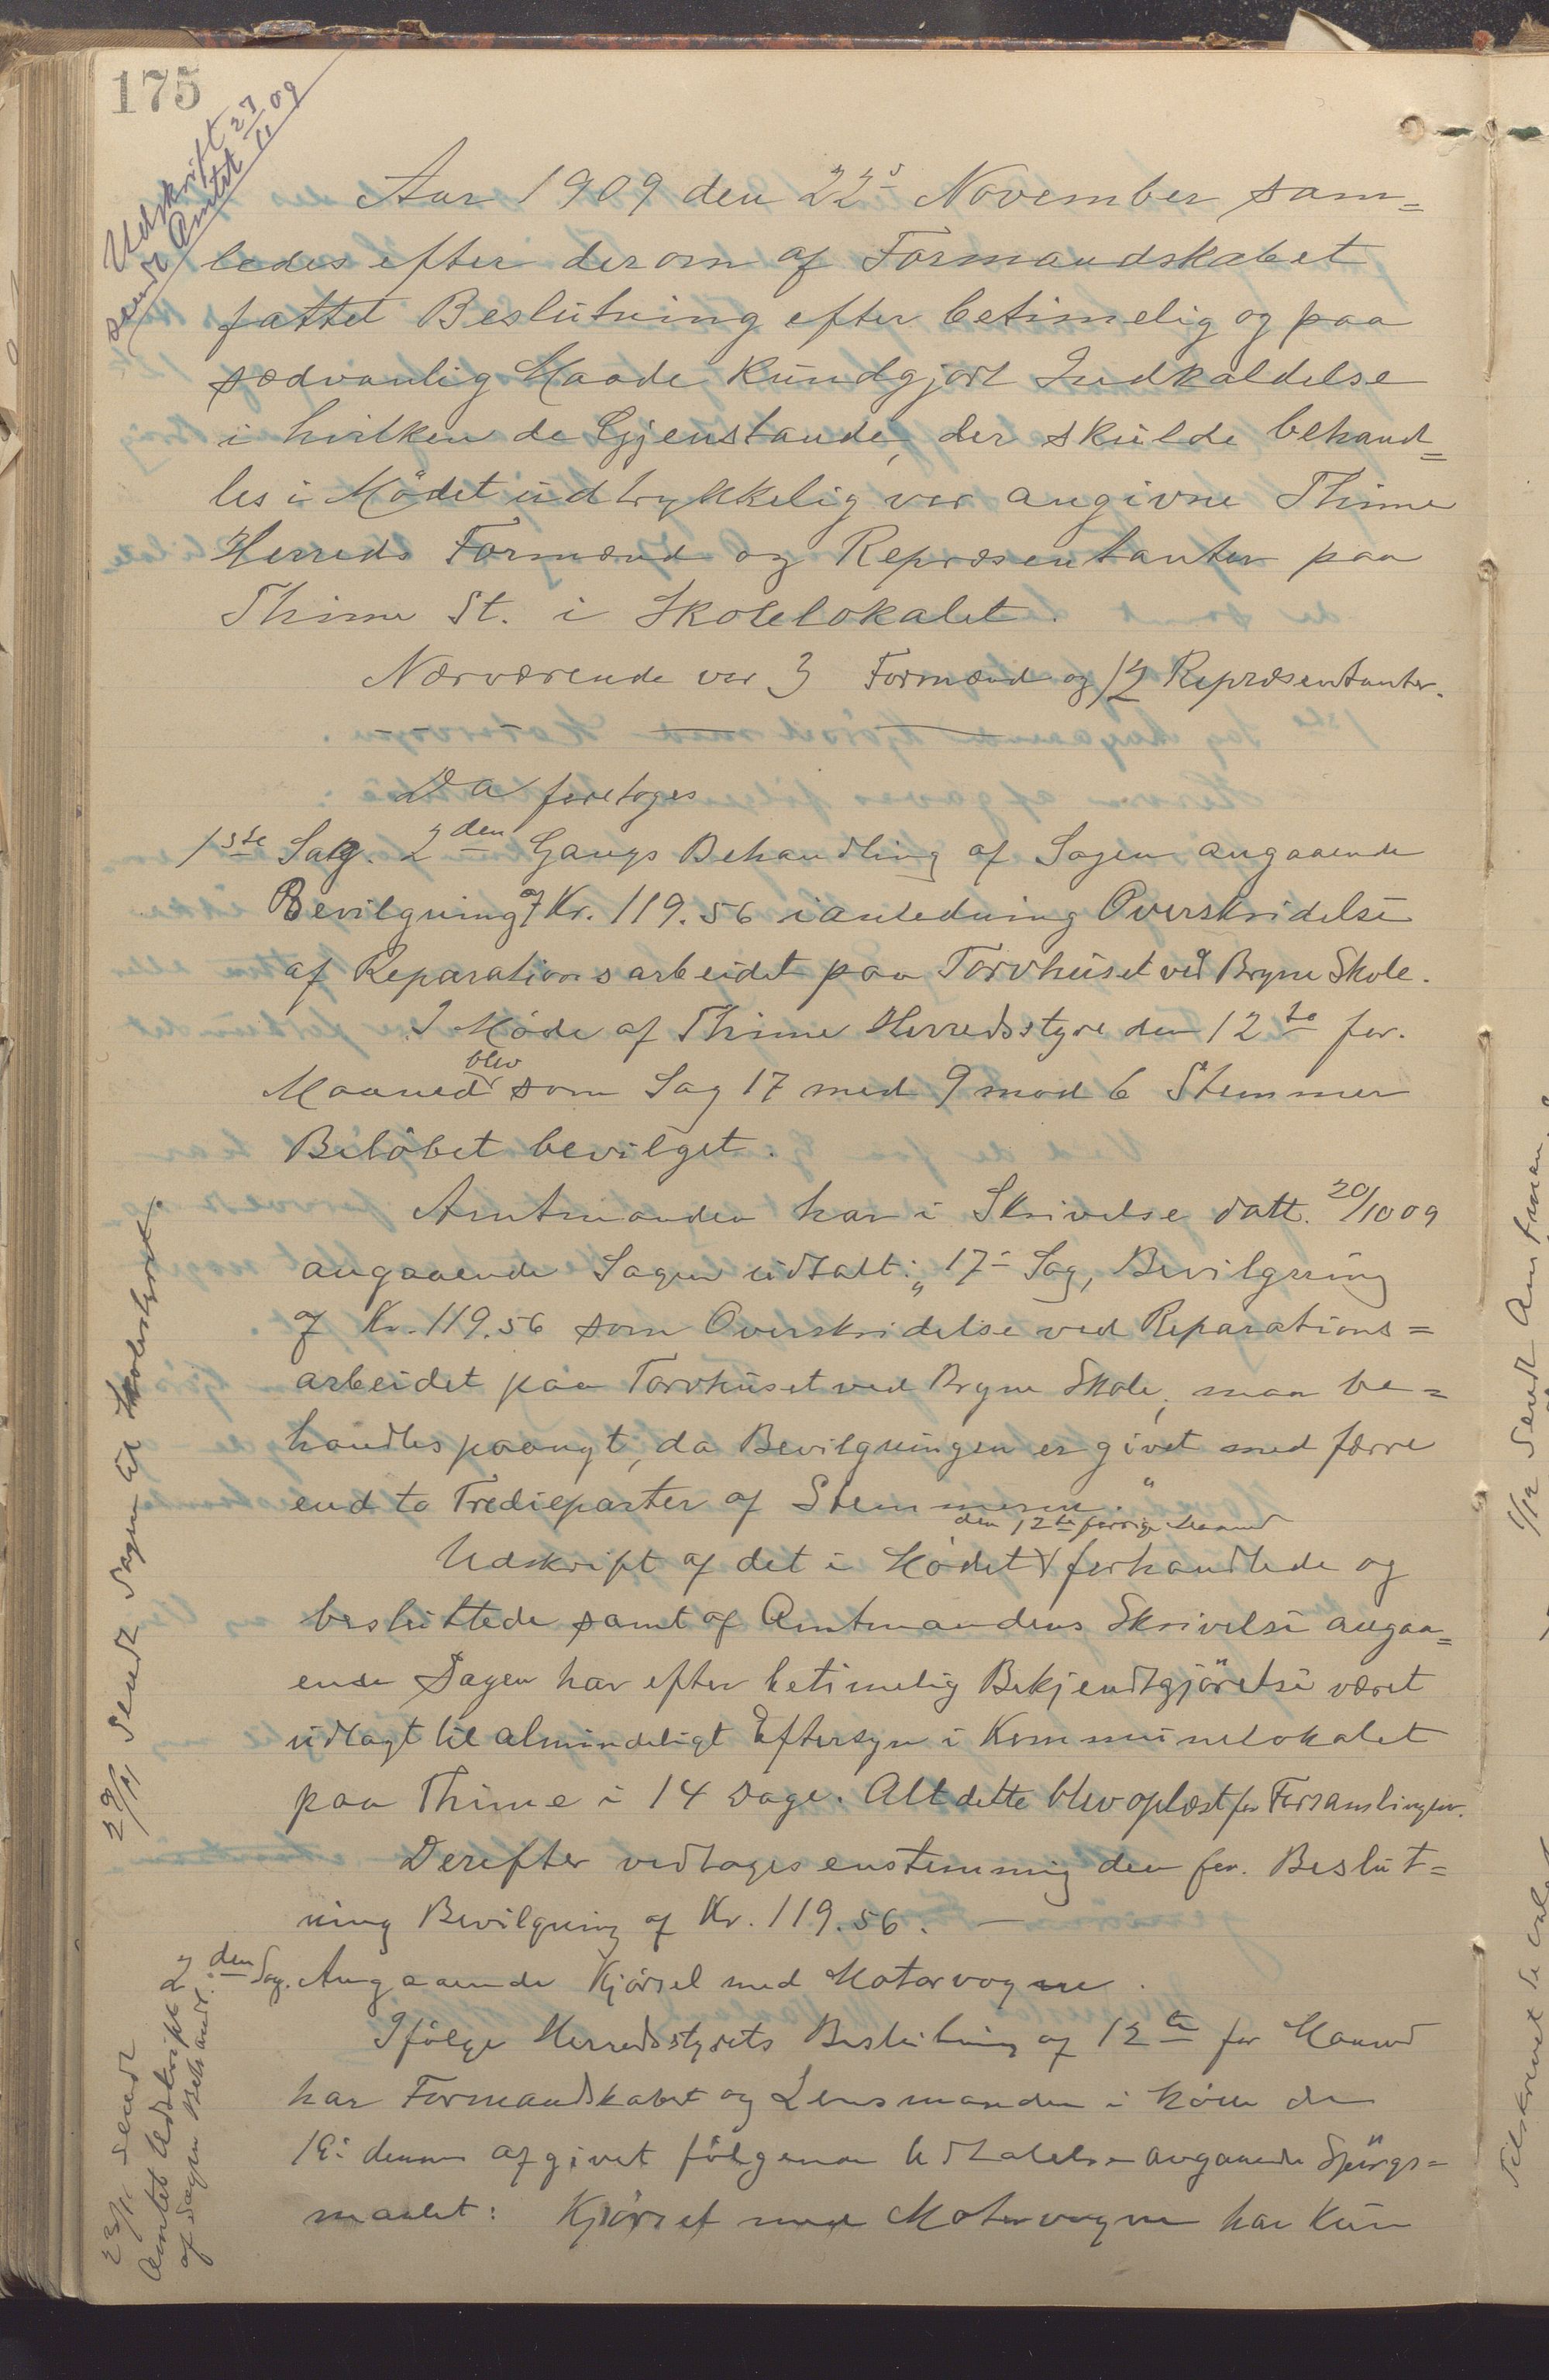 175
Udskrift 23/11 09
sendt Amtet
Aar 1909 den 22d November sam=
ledes efter derom af Formandskabet
fattet Beslutning efter betimelig og paa
sædvanlig Maade kundgjort Indkaldelse
i hvilken de Gjenstande, der skulde behand=
les i Mödet udtrykkelig var angivne Thime
Herreds Formænd og Repræsentanter paa
Thime St. i Skolelokalet.
Nærværende var 3 Formænd og 12 Repræsentanter.
Da foretoges
1ste Sag. 2den Gangs Behandling af Sagen angaaende
Bevilgning af Kr. 119.56 i anledning Overskridelse
af Reparationsarbeidet paa Torvhuset ved Bryne Skole.
I Möde af Thime Herredsstyre den 12te for.
Maaned blev som Sag 17 med 9 mod 6 Stemmer
Belöbet bevilget.
Amtmanden har i Skrivelse datt. 20/10 09
angaaende Sagen udtalt: „17- Sag, Bevilgning
af Kr. 119.56 som Overskridelse ved Reparations=
arbeidet paa Torvhuset ved Bryne Skole, maa be=
handles paanyt, da Bevilgningen er givet med færre
end to Trediparter af Stemmerne."
Udskrift af det i Mödet den 12te forrige Maaned forhandlede og
besluttede samt af Amtmandens Skrivelse angaa=
ende Sagen har efter betimelig Bekjendtgjörelse været
udlagt til almindeligt Eftersyn i Kommunelokalet
paa Thime i 14 Dage. Alt dette blev oplæst for Forsamlingen.
Derefter vedtoges enstemmig den for. Beslut=
ning Bevilgning af Kr. 119.56. —
2den Sag. Angaaende Kjörsel med Motorvogne.
Ifölge Herredsstyrets Beslutning af 12te for Maaned
har Formandskabet og Lensmanden i Möde den
19- dennes afgivet fölgende Udtalelse angaaende Spörgs=
maalet: Kjörsel med Motorvogne har kun
29/11 Sendt Sagen til Skolestyret.
23/11 sendt
Amtet Udskrift
af Sagens Behandl.
1/12 Sendt Amtman